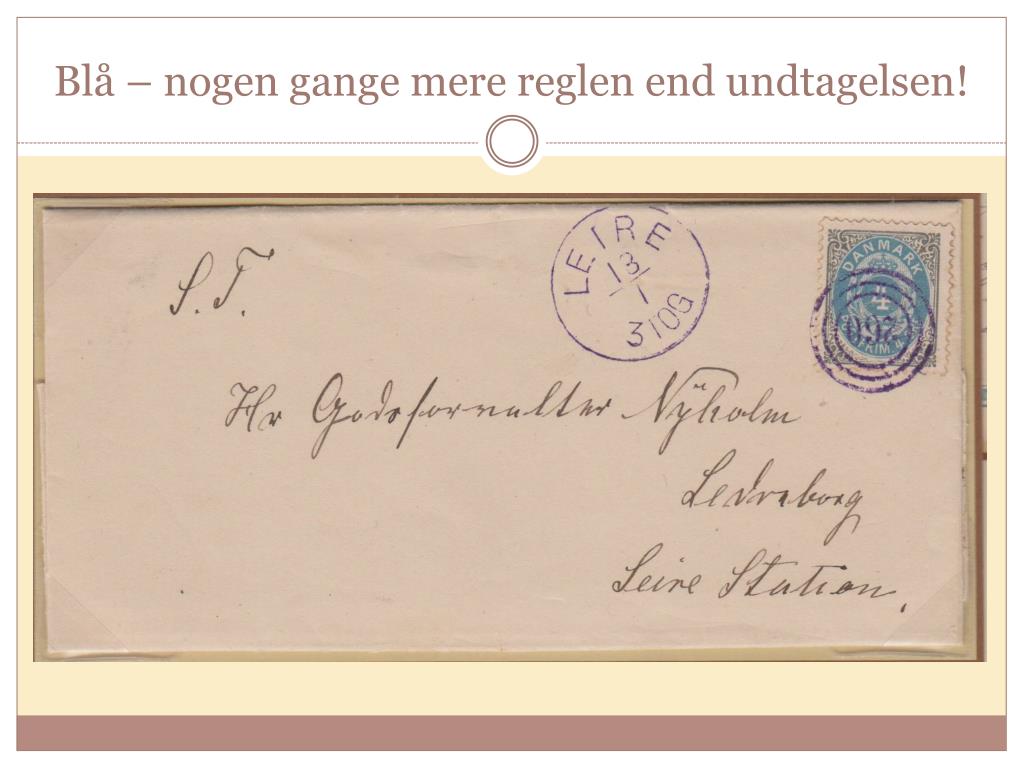 Blå – nogen gange mere reglen end undtagelsen!
S. T.
LEIRE
13/1
3 TOG
DANMARK
4
260
FRIM. 4
Hr Godsforvalter Nyholm
Ledreborg
Leire Station.